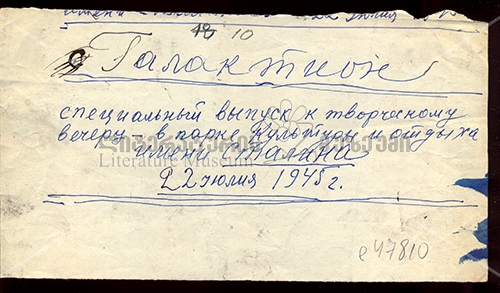 имени 22 июля
18 10
Галактион
специальный выпуск к творческому
вечеру - в парке Культуры и отдыха
имени Сталина
22 июля 1945 г.
Literature Museum
e47810